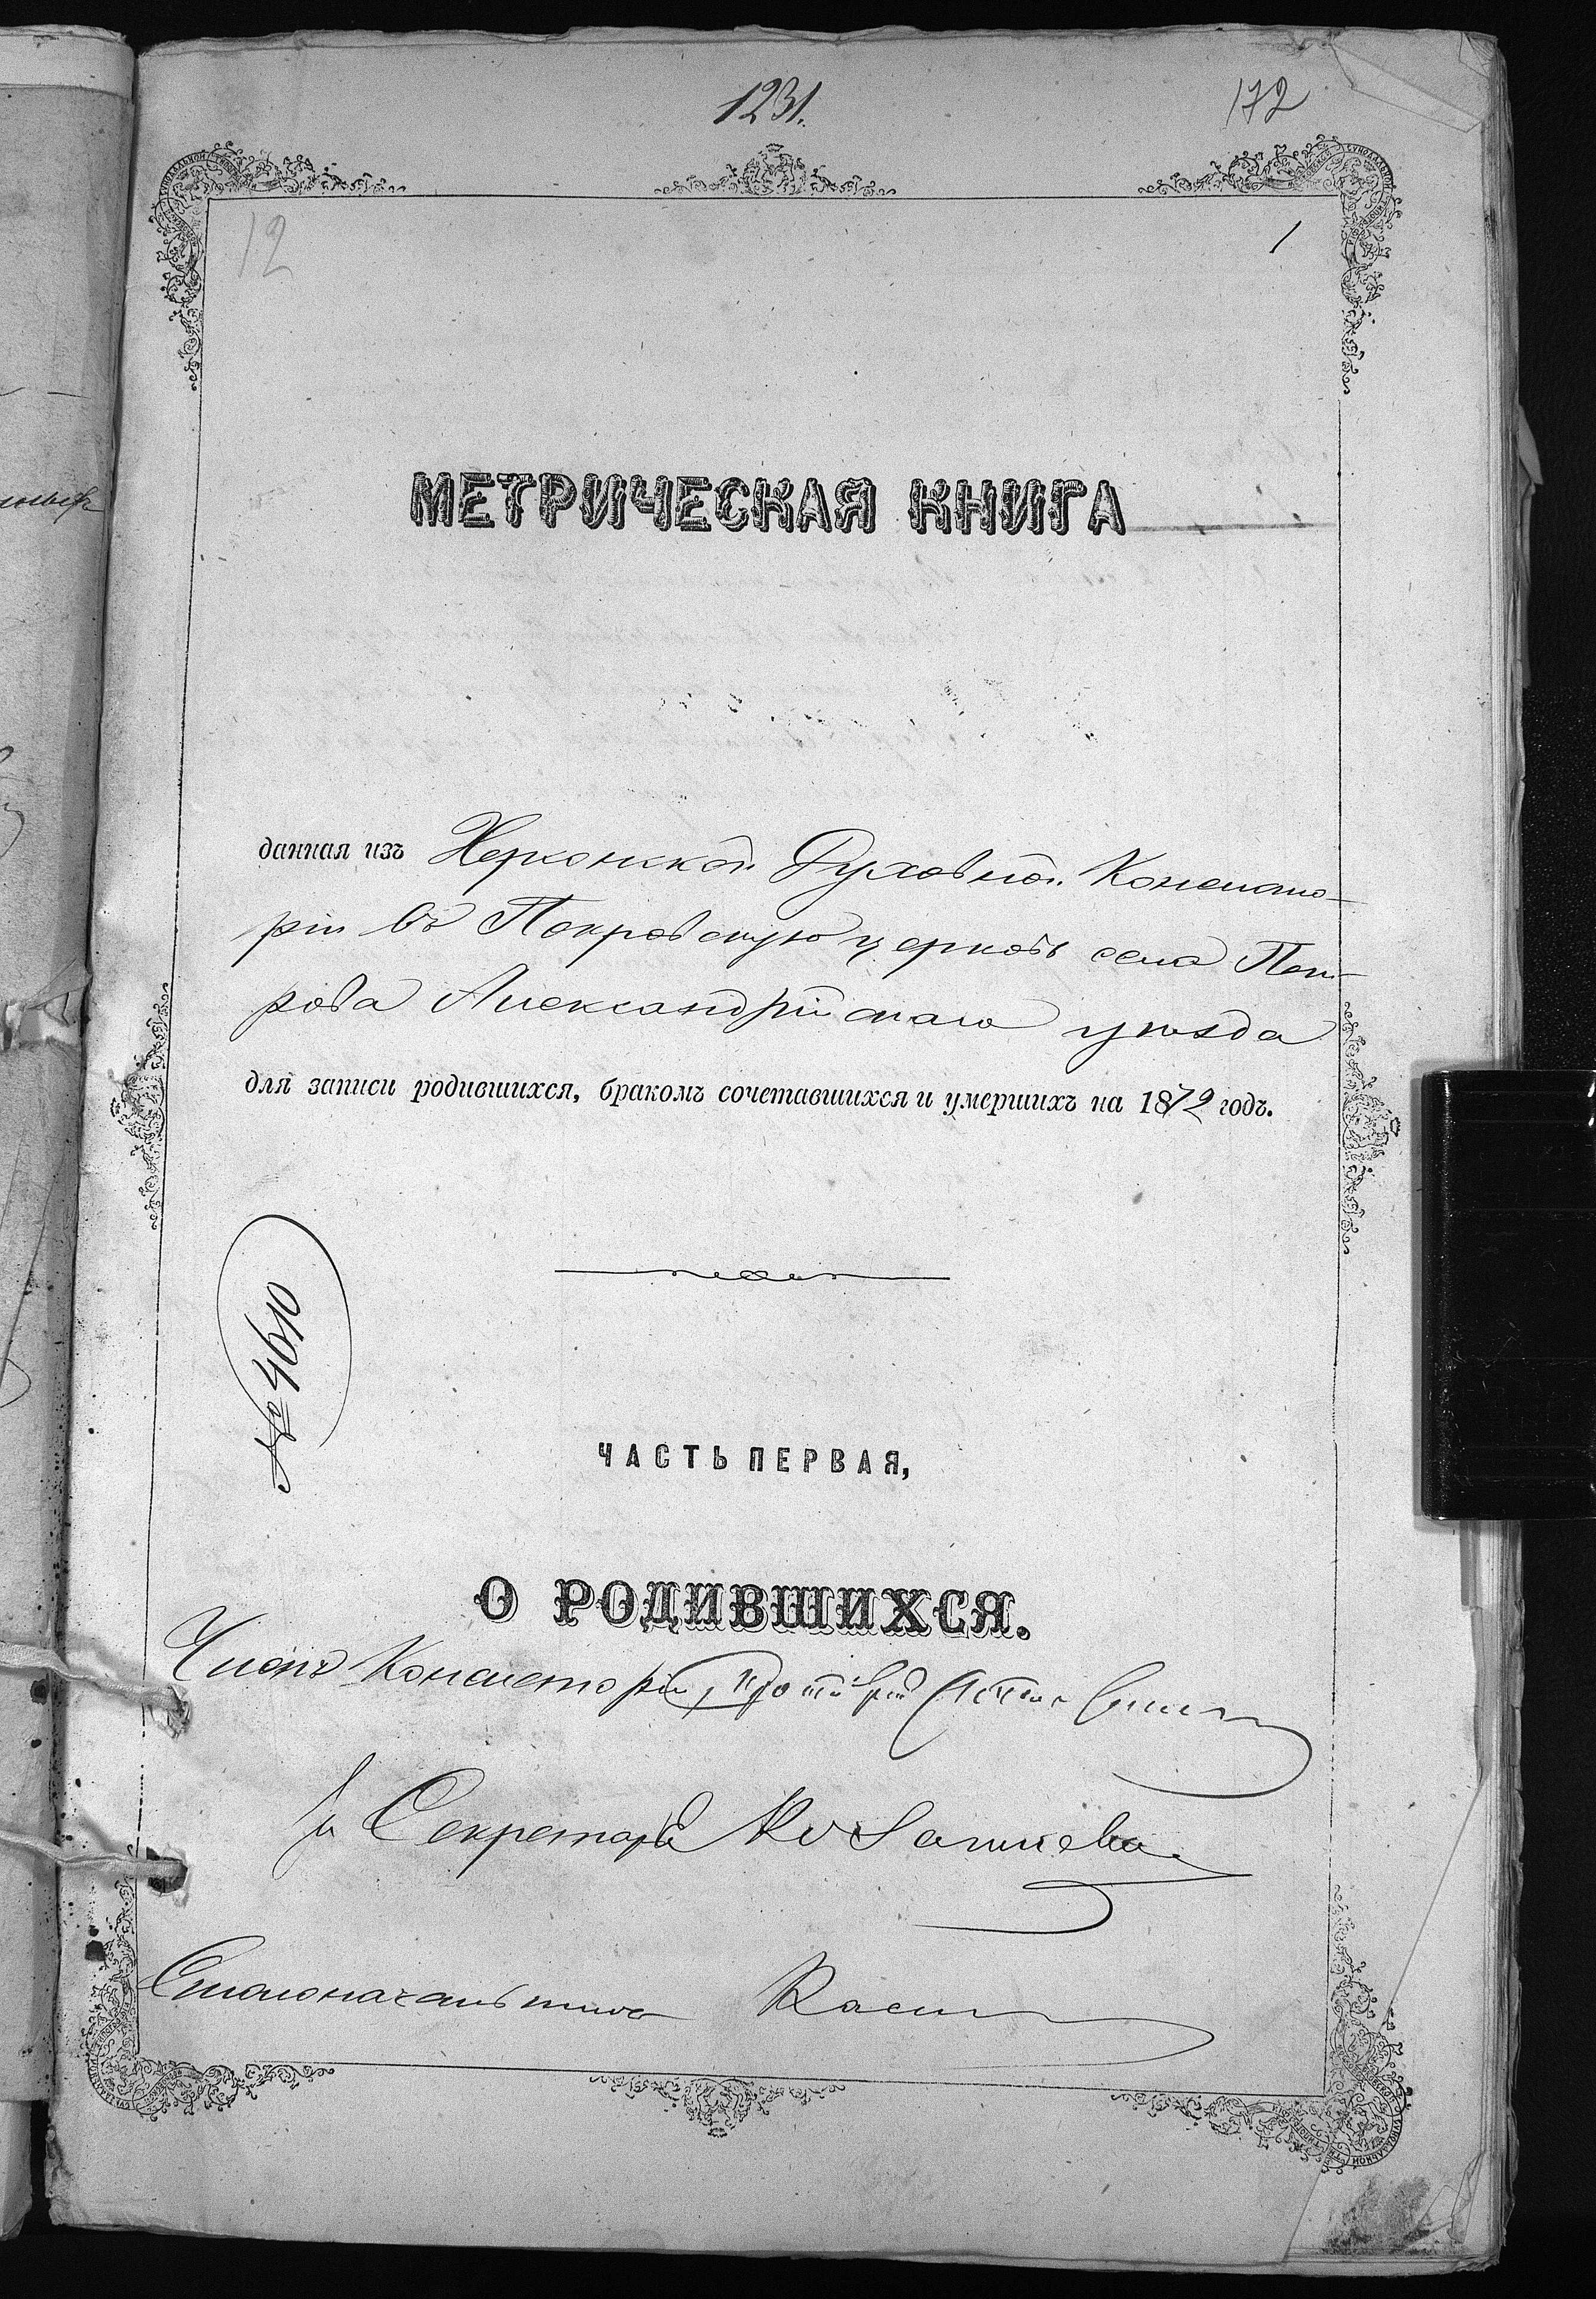 1231.
172
12
1
МЕТРИЧЕСКАЯ КНИГА
данная изъ Херсонской Духовной Консисто-
ріи въ Покровскую церковь села Пет-
рова Александрійскаго уѣзда
для записи родившихся, бракомъ сочетавшихся и умершихъ на 1872 годъ.
№ 4610
ЧАСТЬ ПЕРВАЯ,
О РОДИВШИХСЯ.
Членъ Консисторіи, Протоіерей
Секретарь
Столоначальникъ